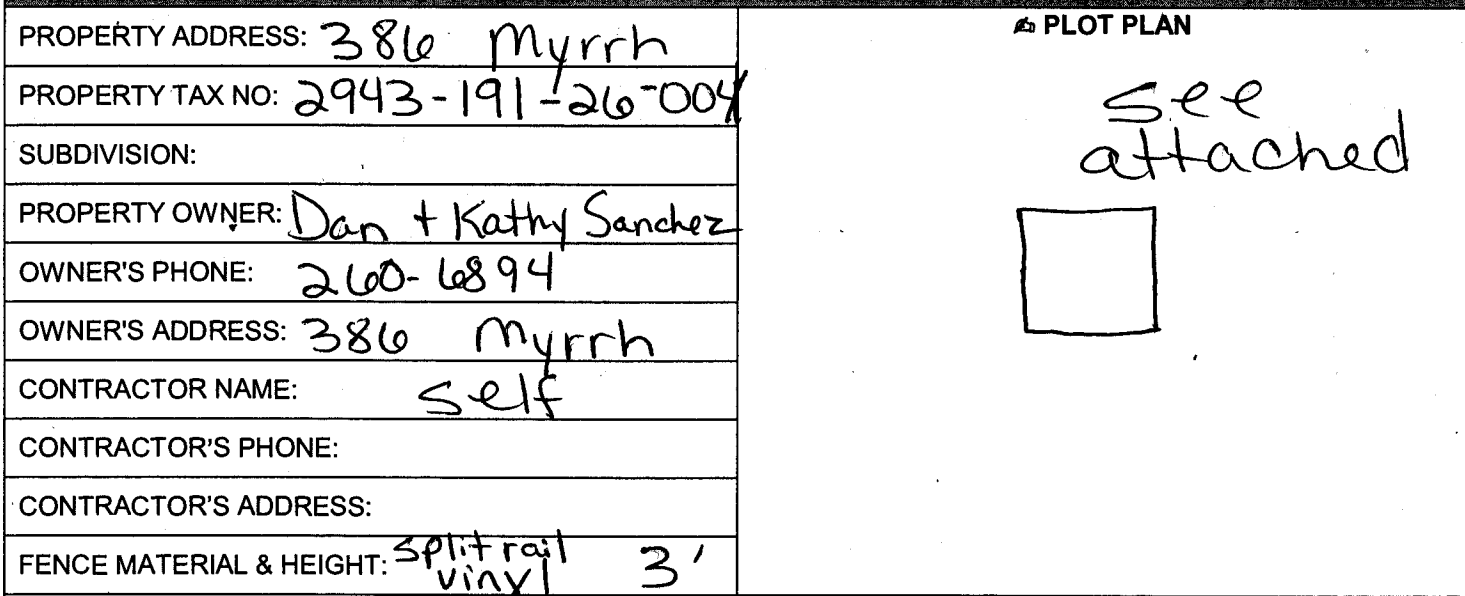 PROPERTY ADDRESS: 386 Myrrh
PROPERTY TAX NO: 2943-191-26-004
SUBDIVISION:
PROPERTY OWNER: Dan + Kathy Sanchez
OWNER'S PHONE: 260-6894
OWNER'S ADDRESS: 386 Myrrh
CONTRACTOR NAME: self
CONTRACTOR'S PHONE:
CONTRACTOR'S ADDRESS:
FENCE MATERIAL & HEIGHT: split rail vinyl 3'
✍ PLOT PLAN
see
attached